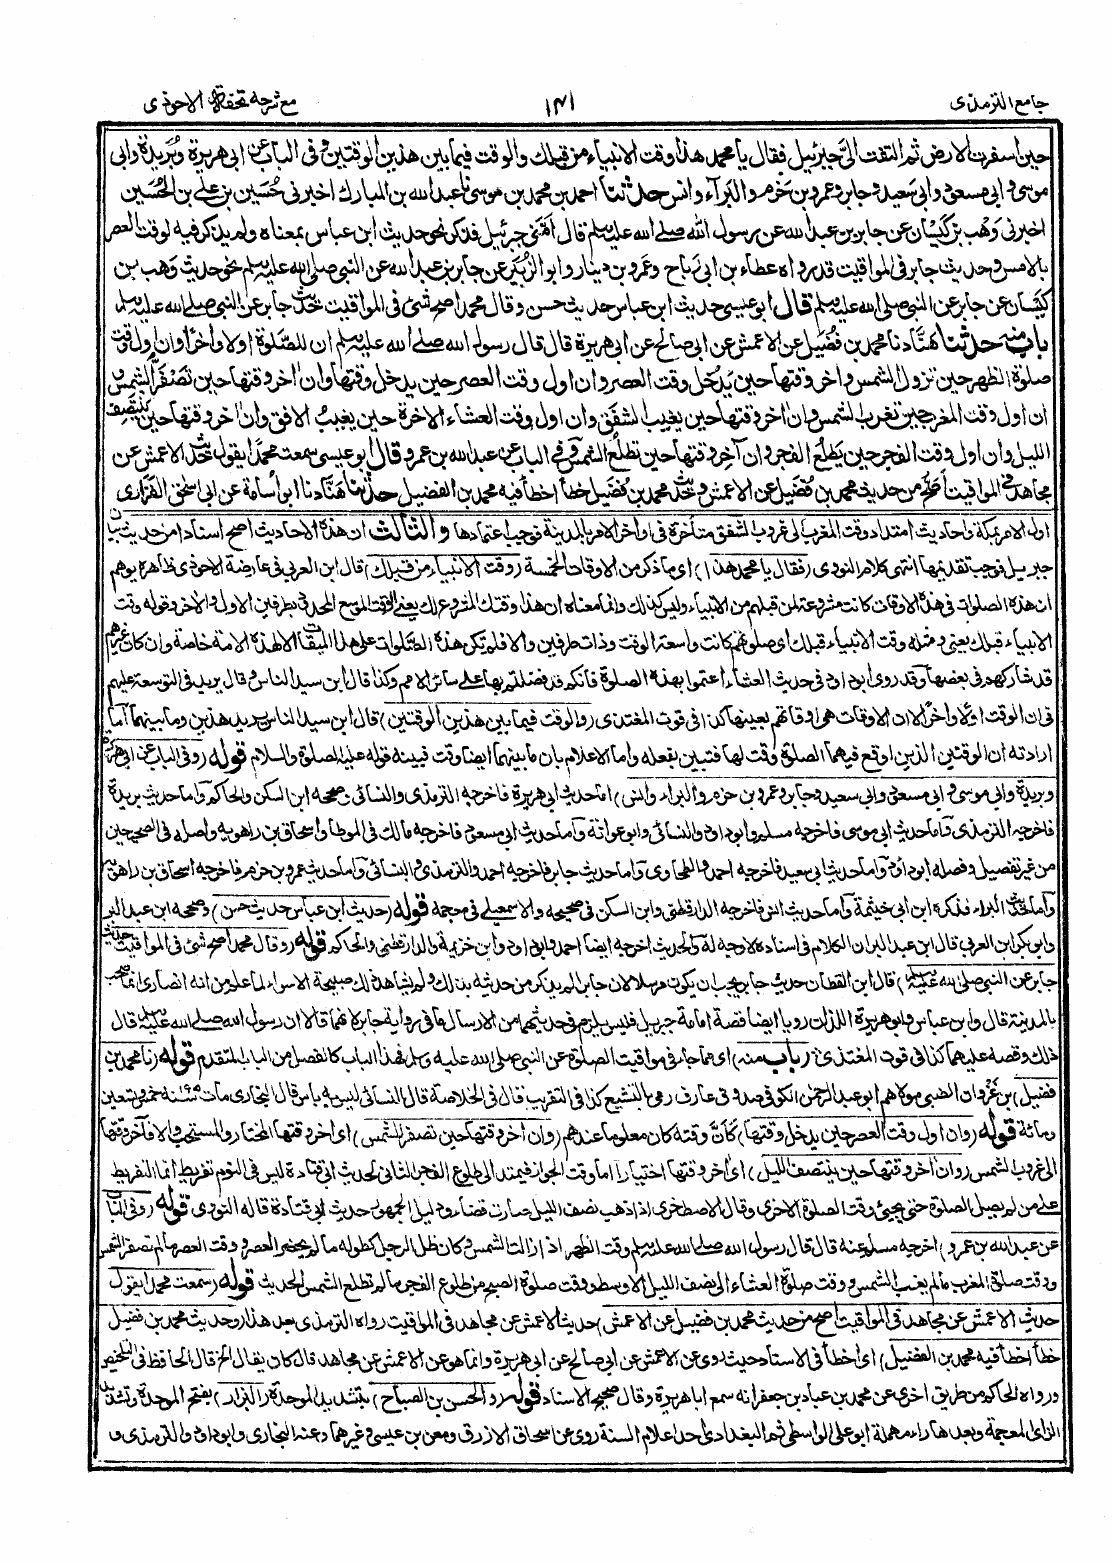 جامع الترمذی
١٤١
مع شرحه تحفة الاحوذی
حين اسفرت الارض ثم التفت الىّ جبرئيل فقال يا محمد هذا وقت الانبياء من قبلك والوقت فيما بين هذين الوقتين وفى الباب عن ابى هريرة وبُريدة وابى
موسى وابى مسعود وابى سعيد وجابر وعمرو بن حزم والبرآء وانس حدثنا احمد بن محمد بن موسى نا عبد الله بن المبارك اخبرنى حُسَين بن على بن الحُسَين
اخبرنى وَهْب بن كَيْسَان عن جابر بن عبد الله عن رسول الله صلى الله عليه وسلم قال اَمَّنِى جبرئيل فذكر نحو حديث ابن عباس بمعناه ولم يذكر فيه لوقت العصر
بالامس وحديث جابر فى المواقيت قد رواه عطاء بن ابى رباح وعمرو بن دينار وابو الزُبَير عن جابر بن عبد الله عن النبى صلى الله عليه وسلم نحو حديث وَهْب بن
كَيْسَان عن جابر عن النبى صلى الله عليه وسلم قال ابو عيسى حديث ابن عباس حديث حسن وقال محمد اصح شئ فى المواقيت حديث جابر عن النبى صلى الله عليه وسلم
باب منه حدثنا هَنَّاد نا محمد بن فُضَيل عن الاعمش عن ابى صالح عن ابى هريرة قال قال رسول الله صلى الله عليه وسلم ان للصَّلوة اولا واٰخرًا وان اول وقت
صلوة الظهر حين تزول الشمس واٰخر وقتها حين يَدْخُل وقت العصر وان اول وقت العصر حين يدخل وقتها وان اٰخر وقتها حين تَصْفَرُّ الشمس و
ان اول وقت المغرب حين تغرب الشمس وان اٰخر وقتها حين يغيب الشفق وان اول وقت العشاء الاٰخرة حين يغيب الافق وان اٰخر وقتها حين ينتصف
الليل وان اول وقت الفجر حين يَطْلُع الفجر وان آخر وقتها حين تطلُع الشمس وفى الباب عن عبد الله بن عمرو قال ابو عيسى سمعت محمدًا يقول حديث الاعمش عن
مجاهد فى المواقيت اصح من حديث محمد بن فُضَيل عن الاعمش وحديث محمد بن فُضَيل خطأ اخطأ فيه محمد بن الفضيل حدثنا هَنَّاد نا ابو اُسامة عن ابى اسحٰق الفَزارى
اول الامر بمكة واحاديث امتداد وقت المغرب الى غروب الشفق متأخرة فى اواخر الامر بالمدينة فوجب اعتمادها والثالث ان هذه الاحاديث اصح اسنادا من حديث بيان
جبريل فوجب تقديمها انتهى كلام النووى (فقال يا محمد هذا) اى ما ذكر من الاوقات الخمسة (وقت الانبياء من قبلك) قال ابن العربى فى عارضة الاحوذى ظاهره يوهم
ان هذه الصلوات فى هذه الاوقات كانت مشروعة لمن قبلهم من الانبياء وليس كذلك وانما معناه ان هذا وقتك المشروع لك يعنى الوقت الموسع المحدود بطرفين الاول والاٰخر وقوله وقت
الانبياء قبلك يعنى ومثله وقت الانبياء قبلك اى صلوتهم كانت واسعة الوقت وذات طرفين والا فلم تكن هذه الصلوات على هذا الميقات الا لهذه الامة خاصة وان كان غيرهم
قد شاركهم فى بعضها وقد روى ابو داود فى حديث العشاء اعتموا بهذه الصلوة فانكم قد فضلتم بها على سائر الامم وكذا قال ابن سيد الناس وقال يريد فى التوسعة عليهم
فى ان الوقت اولا واٰخرا لا ان الاوقات هى اوقاتهم بعينها كذا فى قوت المغتذى (والوقت فيما بين هذين الوقتين) قال ابن سيد الناس يريد هذين وما بينهما اما
ارادته ان الوقتين الذين اوقع فيهما الصلوة وقت لها فتبين بفعله واما الاعلام بان ما بينهما ايضا وقت فبينه قوله عليه الصلوة والسلام قوله (وفى الباب عن ابى هريرة
وبريدة وابى موسى وابى مسعود وابى سعيد وجابر وعمرو بن حزم والبراء وانس) اما حديث ابى هريرة فاخرجه الترمذى والنسائى وصححه ابن السكن والحاكم واما حديث بريدة
فاخرجه الترمذى واما حديث ابى موسى فاخرجه مسلم وابو داود والنسائى وابو عوانة واما حديث ابى مسعود فاخرجه مالك فى الموطأ واسحاق بن راهويه واصله فى الصحيحين
من غير تفصيل وفصله ابو داود واما حديث ابى سعيد فاخرجه احمد والطحاوى واما حديث جابر فاخرجه احمد والترمذى والنسائى واما حديث عمرو بن حزم فاخرجه اسحاق بن راهويه
واما حديث البراء فذكره ابن ابى خيثمة واما حديث انس فاخرجه الدارقطنى وابن السكن فى صحيحه والاسمعيلى فى معجمه قوله (حديث ابن عباس حديث حسن) وصححه ابن عبد البر
وابو بكر ابن العربى قال ابن عبد البر ان الكلام فى اسناده لا وجه له والحديث اخرجه ايضا احمد وابو داود وابن خزيمة والدارقطنى والحاكم قوله (وقال محمد اصح شئ فى المواقيت حديث
جابر عن النبى صلى الله عليه وسلم) قال ابن القطان حديث جابر يجب ان يكون مرسلا لان جابرا لم يذكر من حدثه بذلك ولم يشاهد ذلك صبيحة الاسراء لما علم من انه انصارى انما صحب
بالمدينة قال وابن عباس وابو هريرة اللذان رويا ايضا قصة امامة جبريل فليس يلزم فى حديثهما من الارسال ما فى رواية جابر لانهما قالا ان رسول الله صلى الله عليه وسلم قال
ذلك وقصه عليهما كذا فى قوت المغتذى (باب منه) اى مما جاء فى مواقيت الصلوة عن النبى صلى الله عليه وسلم فهذا الباب كالفصل من الباب المتقدم قوله (نا محمد بن
فضيل) بن غزوان الضبى مولاهم ابو عبد الرحمٰن الكوفى صدوق عارف رمى بالتشيع كذا فى التقريب قال فى الخلاصة قال النسائى ليس به باس قال البخارى مات سنة ١٩٥ خمس وتسعين
ومائة قوله (وان اول وقت العصر حين يدخل وقتها) كَأنَّ وقته كان معلوما عندهم (وان اٰخر وقتها حين تصفر الشمس) اى اٰخر وقتها المختار والمستحب والا فاٰخر وقتها
الى غروب الشمس (وان اٰخر وقتها حين ينتصف الليل) اى اٰخر وقتها اختيارا اما وقت الجواز فيمتد الى طلوع الفجر الثانى لحديث ابى قتادة ليس فى النوم تفريط انما التفريط
على من لم يصل الصلوة حتى يجيئ وقت الصلوة الاخرى وقال الاصطخرى اذا ذهب نصف الليل صارت قضاء ودليل الجمهور حديث ابى قتادة قاله النووى قوله (وفى الباب
عن عبد الله بن عمرو) اخرجه مسلم عنه قال قال رسول الله صلى الله عليه وسلم وقت الظهر اذا زالت الشمس وكان ظل الرجل كطوله ما لم يحضر العصر ووقت العصر ما لم تصفر الشمس
ووقت صلوة المغرب ما لم يغب الشمس ووقت صلوة العشاء الى نصف الليل الاوسط ووقت صلوة الصبح من طلوع الفجر ما لم تطلع الشمس الحديث قوله (سمعت محمدا يقول
حديث الاعمش عن مجاهد فى المواقيت اصح من حديث محمد بن فضيل عن الاعمش) حديث الاعمش عن مجاهد فى المواقيت رواه الترمذى بعد هذا (وحديث محمد بن فضيل
خطأ اخطأ فيه محمد بن الفضيل) اى اخطأ فى الاسناد حيث روى عن الاعمش عن ابى صالح عن ابى هريرة وانما هو عن الاعمش عن مجاهد قال كان يقال الخ قال الحافظ فى التلخيص
ورواه الحاكم من طريق اخرى عن محمد بن عباد بن جعفر انه سمع ابا هريرة وقال صحيح الاسناد قوله (والحسن بن الصباح) بتشديد الموحدة (البزار) بفتح الموحدة وتشديد
الزاى المعجمة وبعدها راء مهملة ابو على الواسطى ثم البغدادى احد اعلام السنة روى عن اسحاق الازرق ومعن بن عيسى وغيرهما وعنه البخارى وابو داود والترمذى و